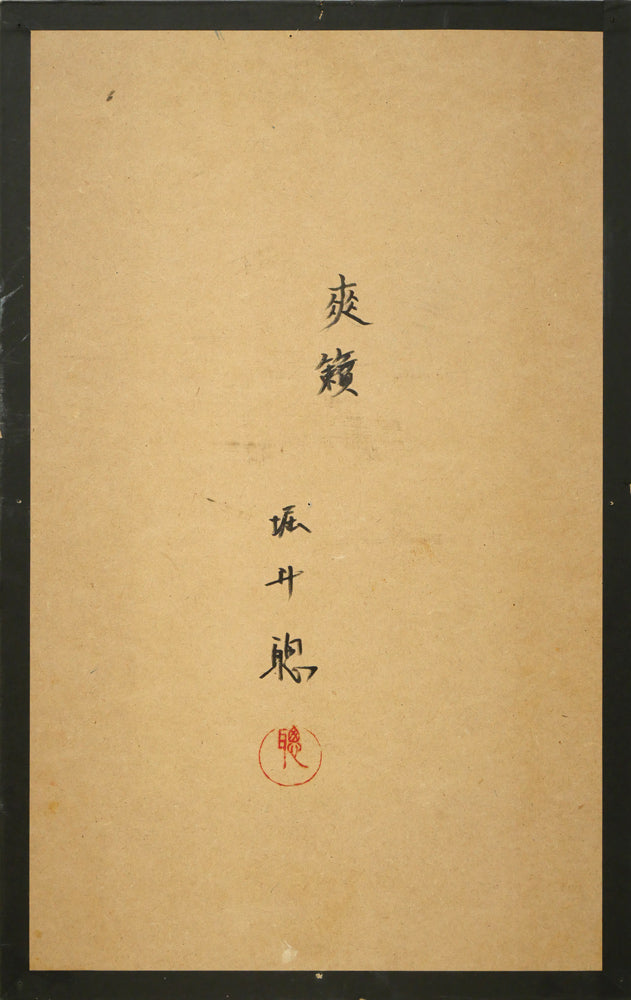 爽籟
堀井聰
聰